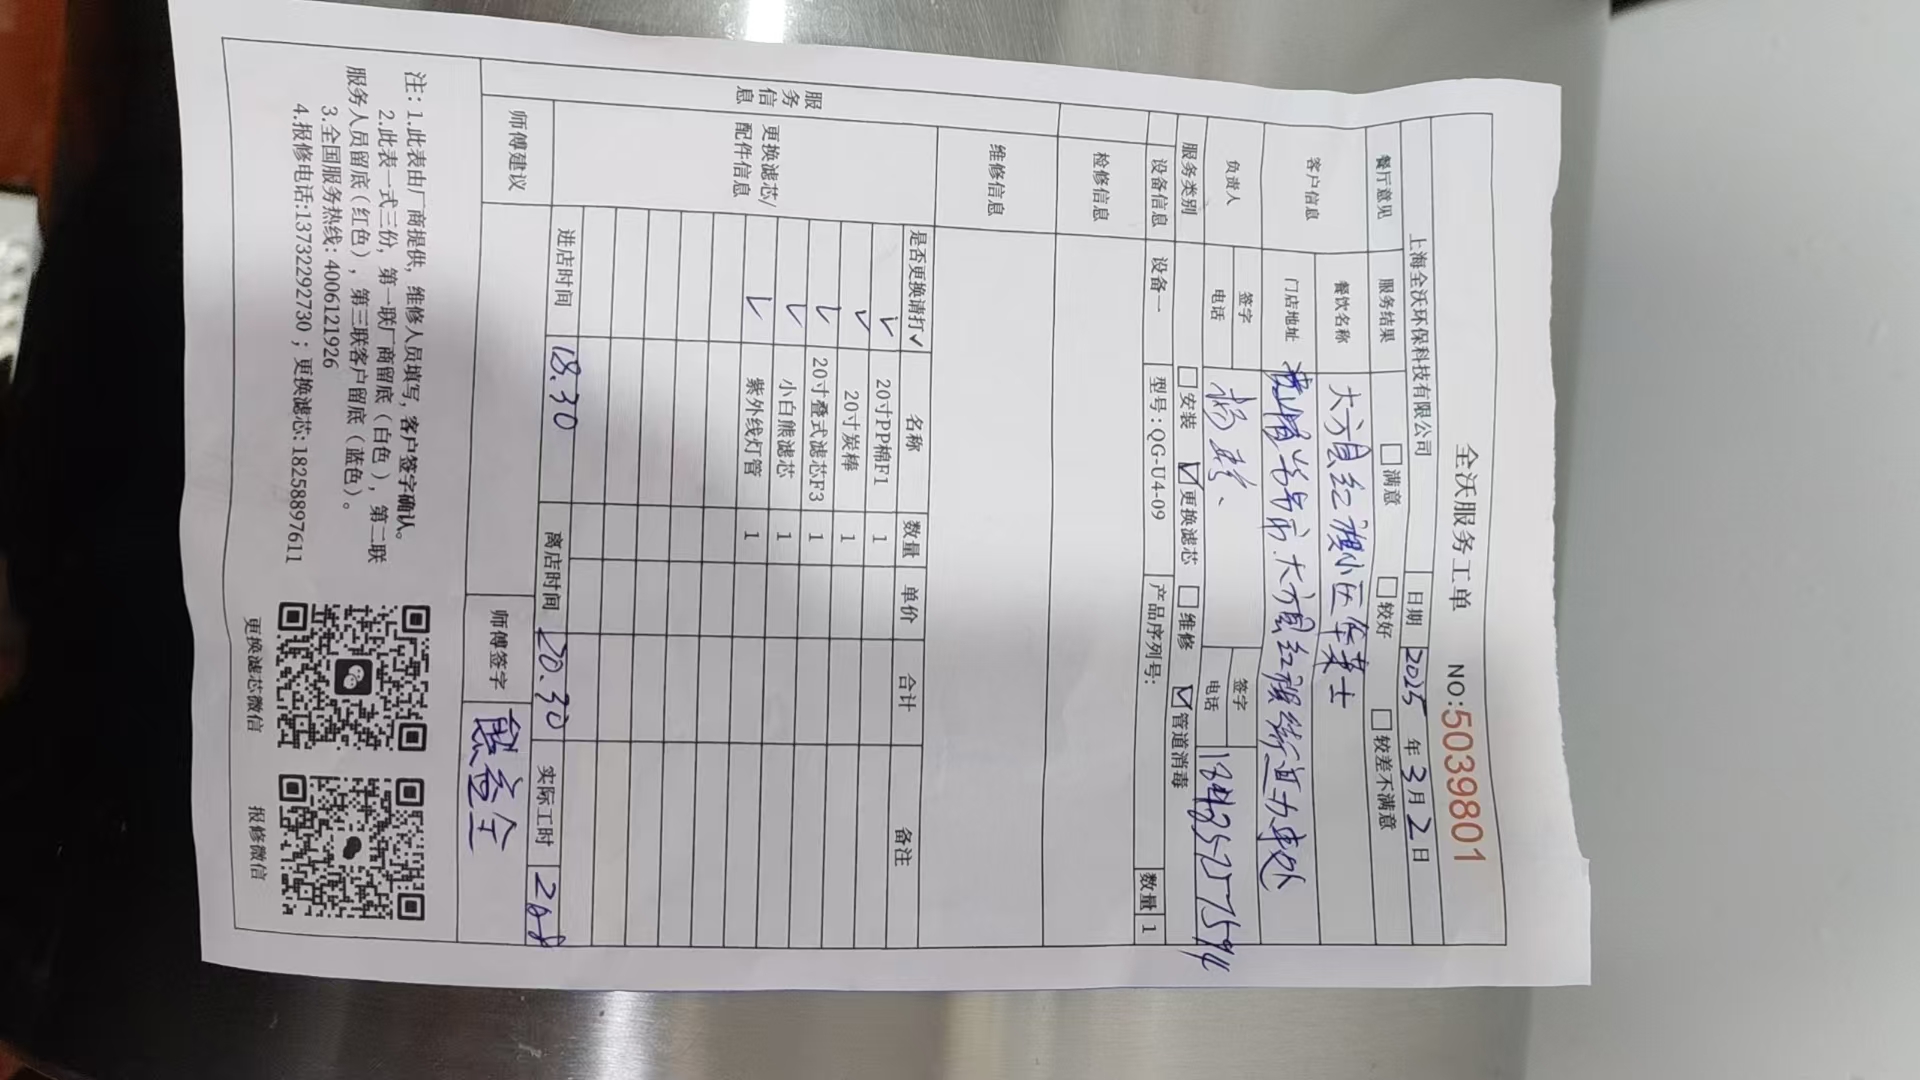 全沃服务工单 NO:5039801
上海全沃环保科技有限公司 日期 2025 年 3 月 2 日
餐厅意见 服务结果 □满意 □较好 □较差不满意
客户信息 餐饮名称 大方县红旗小区华莱士
门店地址 贵州省毕节市大方县红旗街道办事处
负责人 签字 签字
电话 电话
服务类别 □安装 ☑更换滤芯 □维修 ☑管道消毒
设备信息 设备一 型号:QG-U4-09 产品序列号: 数量 1
服务信息
检修信息
维修信息
更换滤芯/配件信息
是否更换请打✓ 名称 数量 单价 合计 备注
✓ 20寸PP棉F1 1
✓ 20寸炭棒 1
✓ 20寸叠式滤芯F3 1
✓ 小白熊滤芯 1
✓ 紫外线灯管 1
进店时间 18.30 离店时间 20.30 实际工时
师傅建议 师傅签字 熊益全
注: 1.此表由厂商提供, 维修人员填写, 客户签字确认。
2.此表一式三份, 第一联厂商留底(白色), 第二联
服务人员留底(红色), 第三联客户留底(蓝色)。
3.全国服务热线: 4006121926
4.报修电话:13732292730 ; 更换滤芯: 18258897611
更换滤芯微信 报修微信